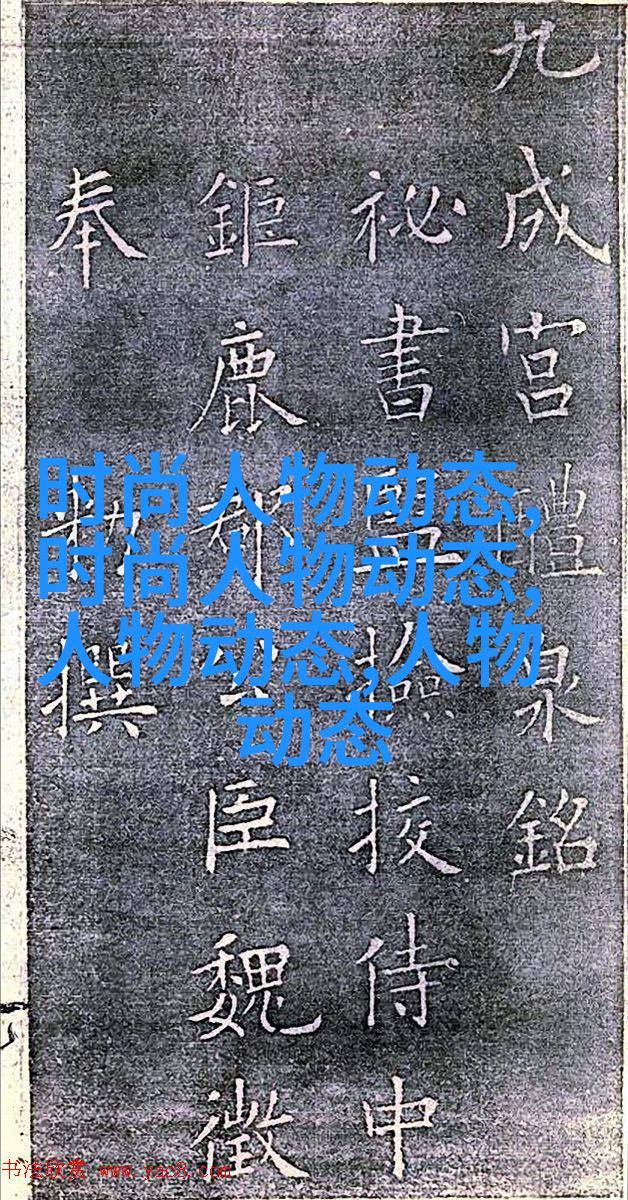 九成宮醴泉銘
祕書監撿挍侍中
鉅鹿郡公臣魏徵
奉勑撰
时尚人物动态,
时尚人物动态,
人物动态,人物
动态
书法欣赏 www.yac8.com